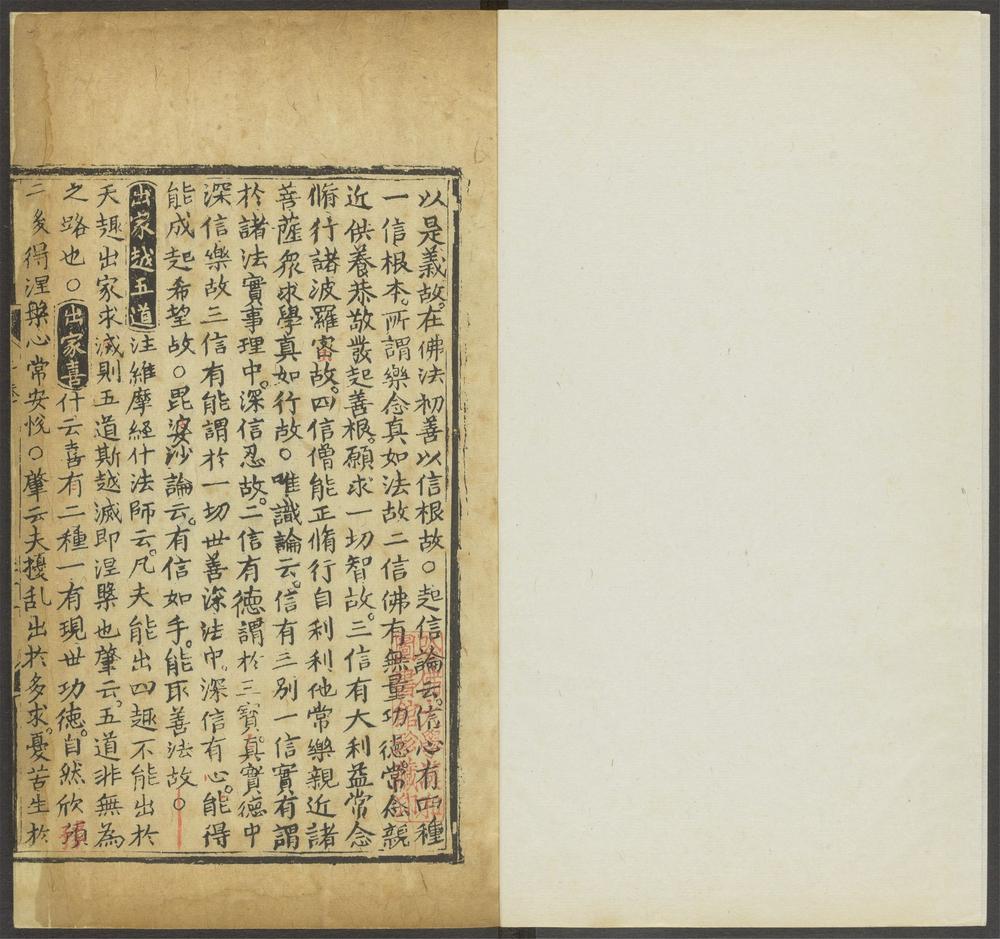 以是義故。在佛法初善以信根故○起信論云。信心有四種
一信根本。所謂樂念真如法故二信佛有無量功德。常念親
近供養恭敬發起善根。願求一切智故。三信有大利益常念
脩行諸波羅蜜故。四信僧能正脩行自利利他常樂親近諸
菩薩眾求學真如行故○唯識論云。信有三別一信實有謂
於諸法實事理中。深信忍故。二信有德謂於三寶真實德中
深信樂故三信有能謂於一切世善深法中。深信有心。能得
能成起希望故○毘婆沙論云。有信如手。能取善法故○
出家越五道注維摩經什法師云。凡夫能出四趣不能出於
天趣出家求滅則五道斯越滅即涅槃也肇云。五道非無為
之路也○出家喜什云喜有二種一有現世功徳。自然欣預
二後得涅槃心常安悅○肇云夫擾乱出於多求。憂苦生於